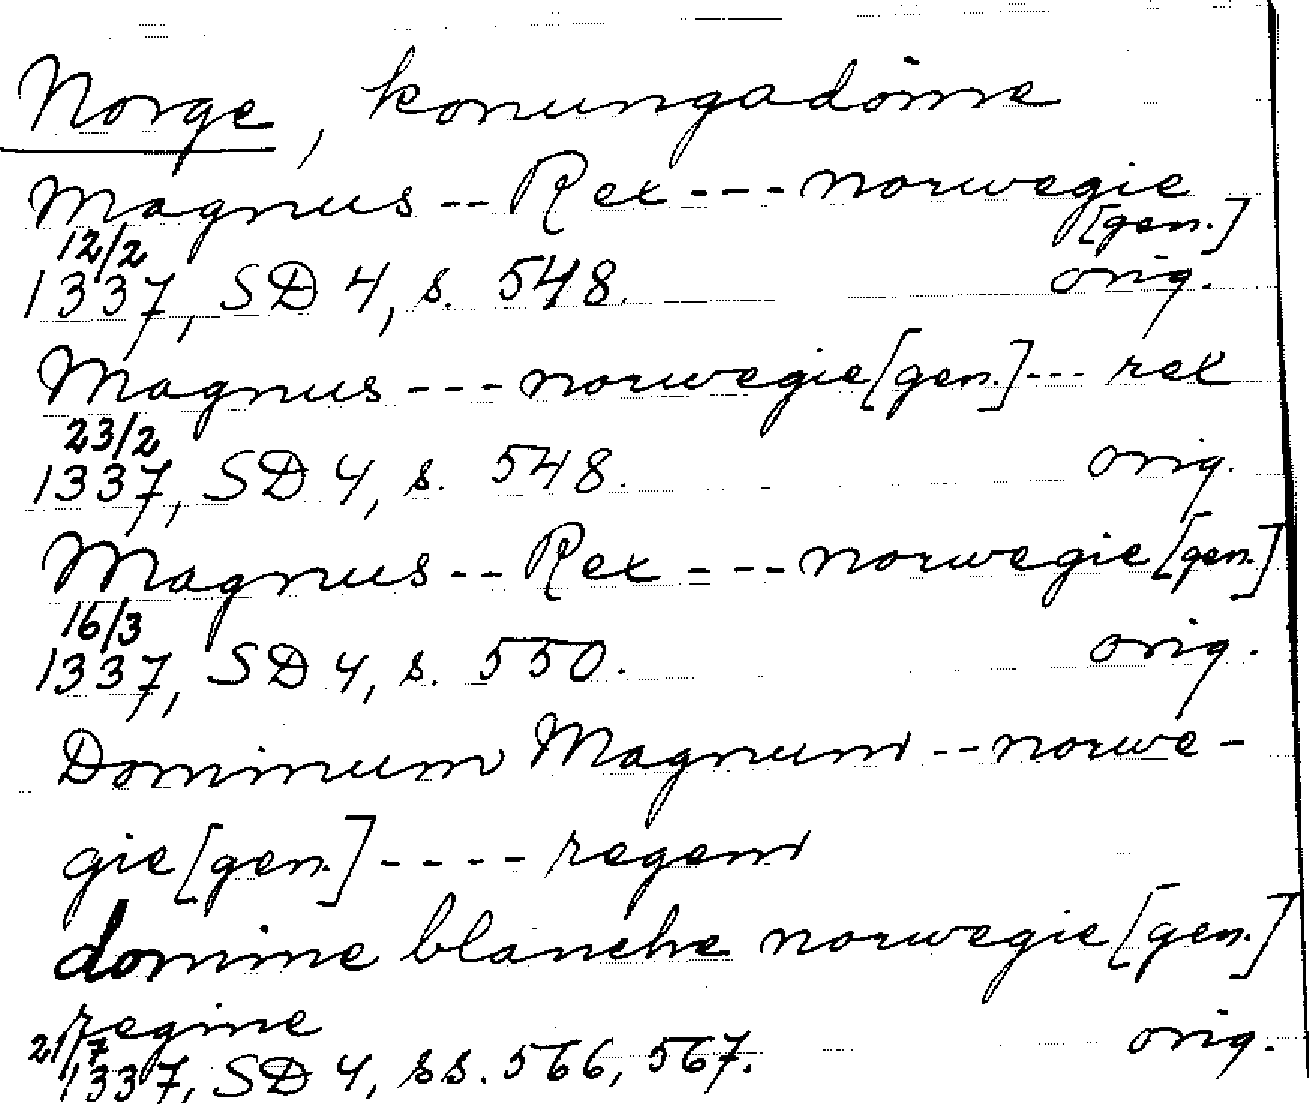 Norge, konungadöme
Magnus -- Rex --- norwegie
[gen.]
12/2
1337, SD 4, s. 548. orig.
Magnus --- norwegie [gen.] --- rex
23/2
1337, SD 4, s. 548. orig.
Magnus -- Rex --- norwegie [gen.]
16/3
1337, SD 4, s. 550. orig.
Dominum Magnum -- norwe-
gie [gen.] ---- regem
domine blanche norwegie [gen.]
regine
21/7
1337, SD 4, ss. 566, 567. orig.